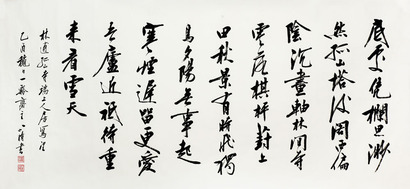 底處憑欄思渺
然孤山塔後閣西偏
陰沉畫軸林間寺
零落棋枰葑上
田秋景有時飛獨
鳥夕陽無事起
寒煙遲留更愛
吾廬近祇待重
來看雪天
林逋孤山寺端上人房寫望
乙酉 書